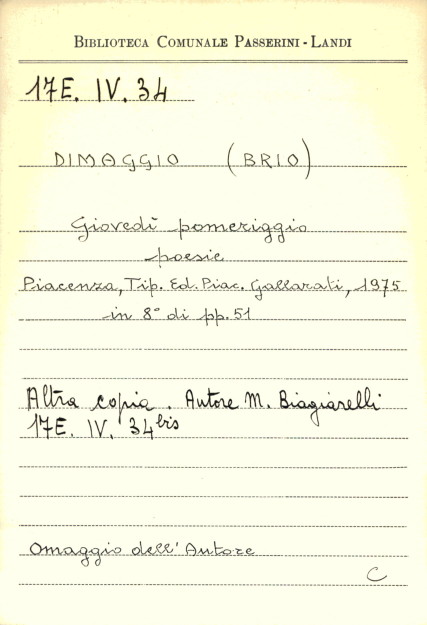 BIBLIOTECA COMUNALE PASSERINI - LANDI
17E. IV. 34
DIMAGGIO (BRIO)
Giovedì pomeriggio
poesie
Piacenza, Tip. Ed. Piac. Gallarati, 1975
in 8° di pp. 51
Altra copia. Autore M. Biagiarelli
17E. IV. 34 bis
Omaggio dell'Autore
C